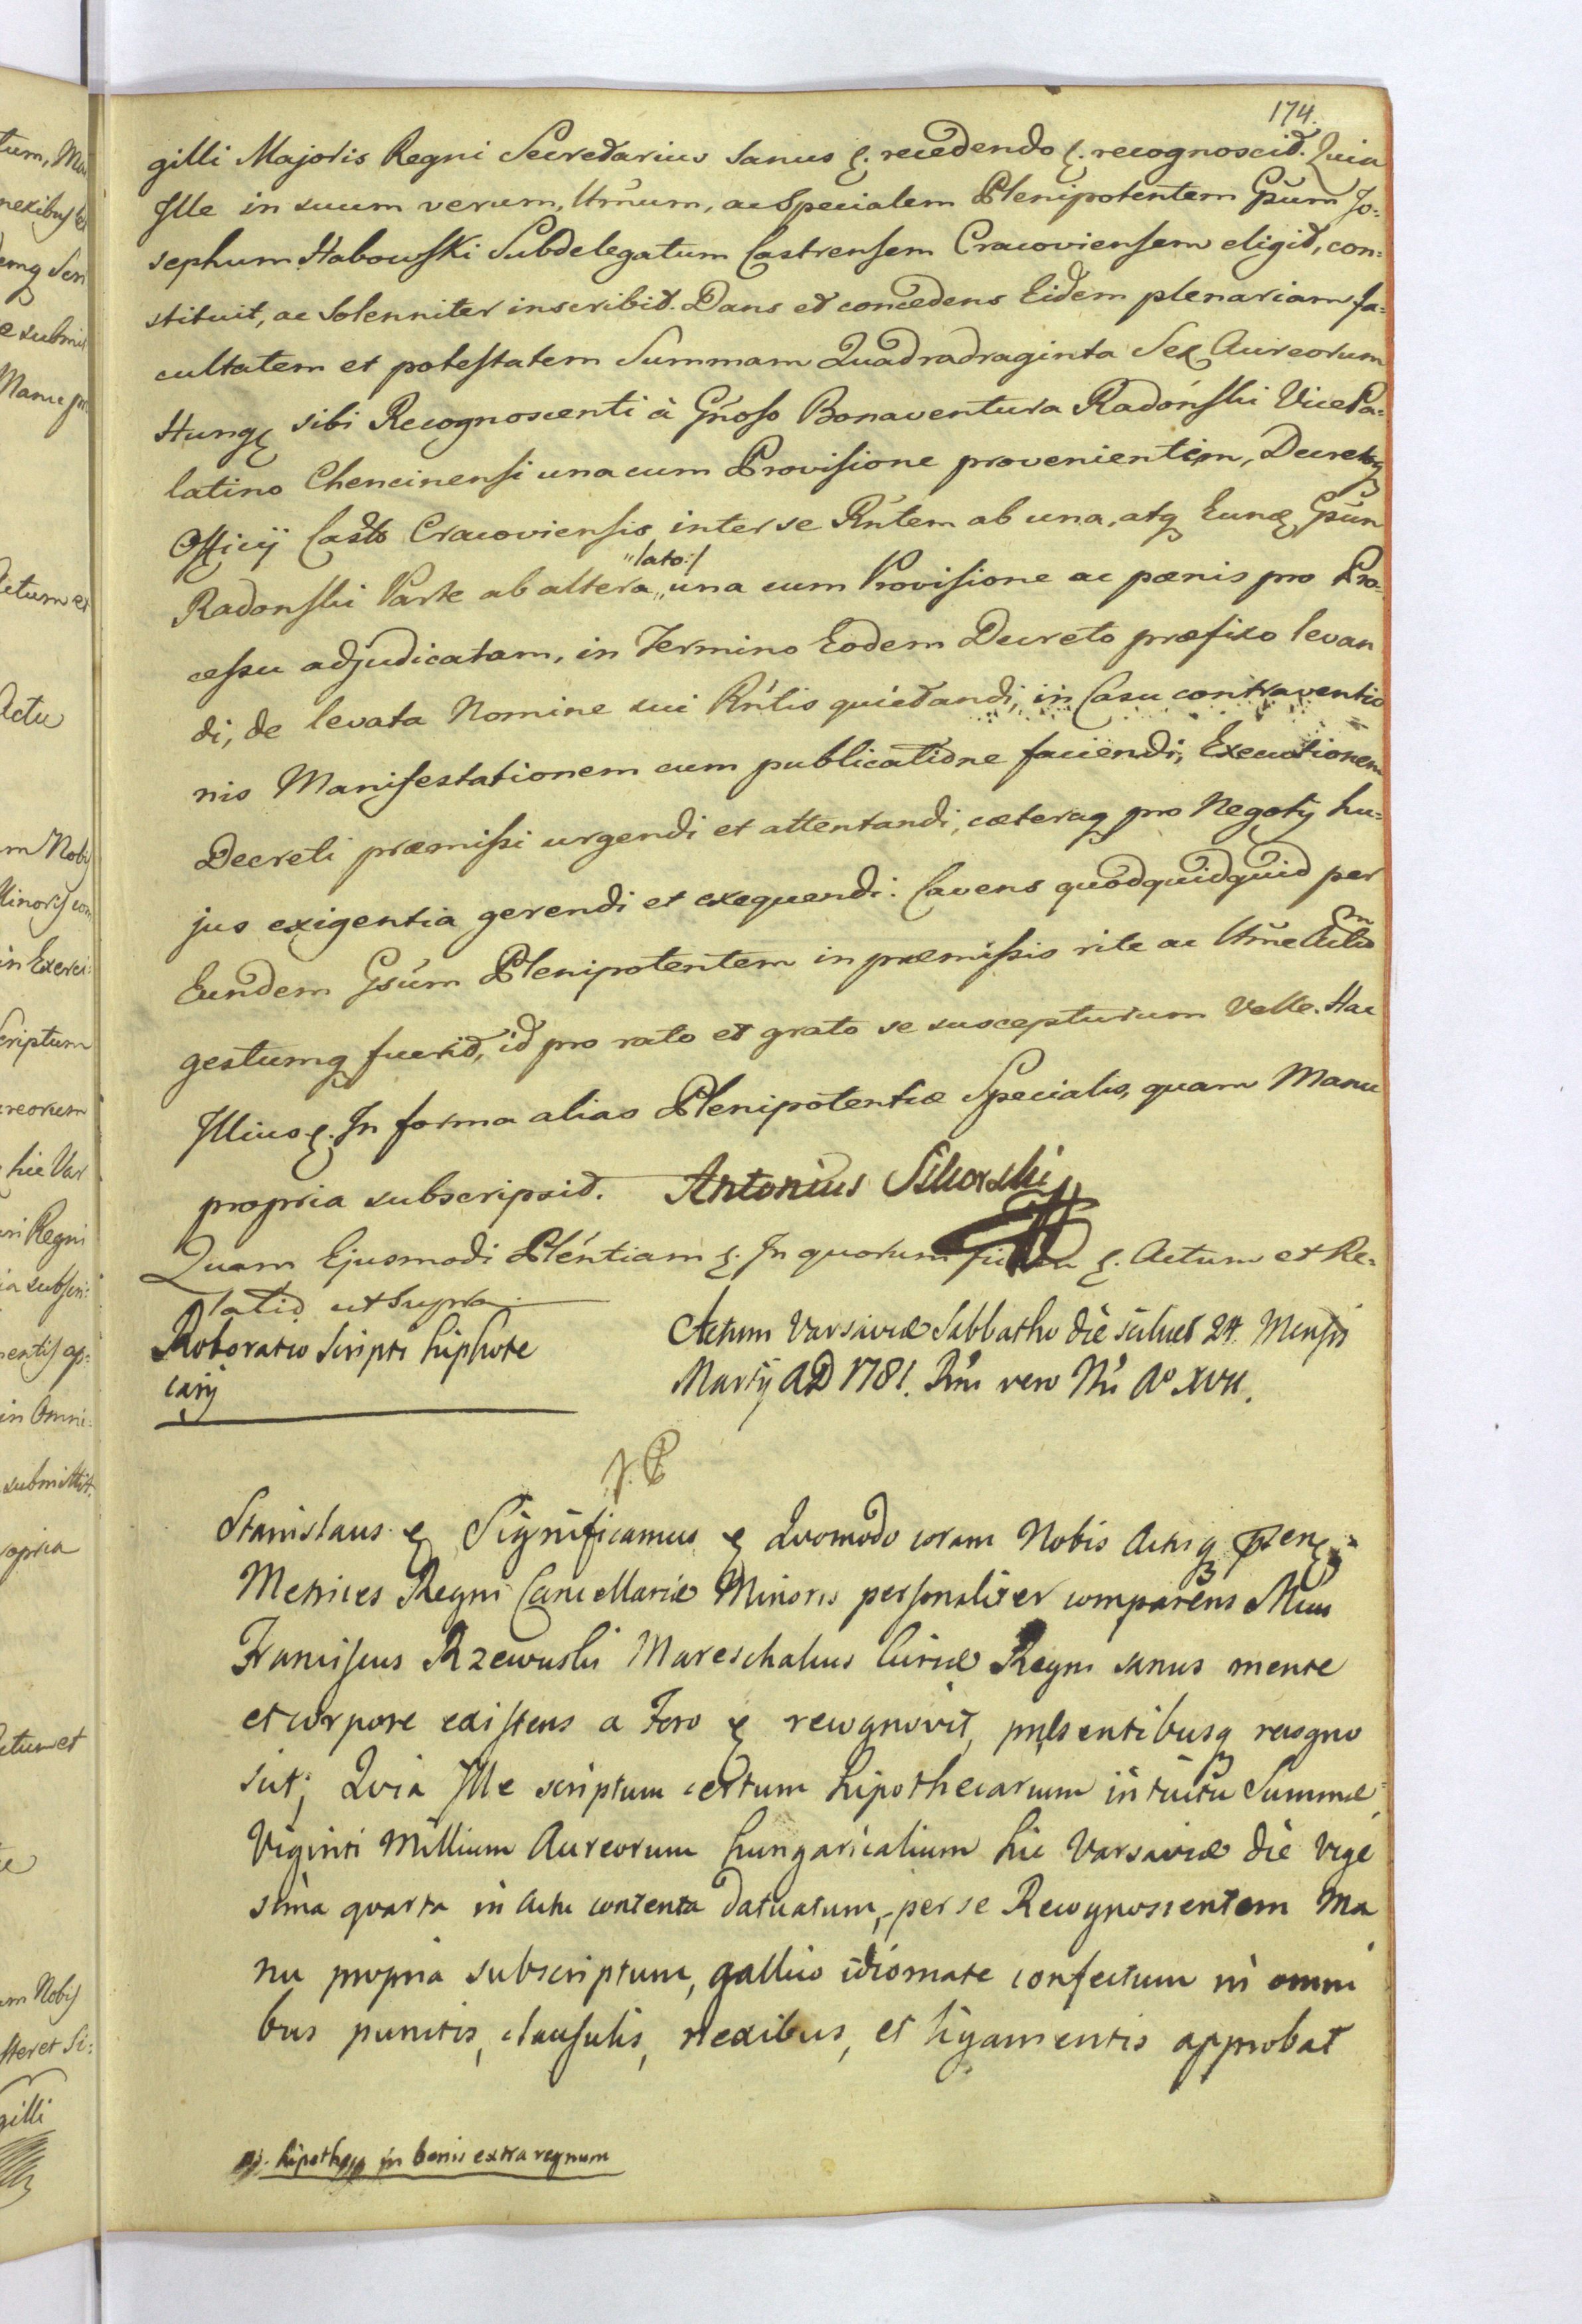 174.
gilli Majoris Regni Secretarius sanus &. recedendo &. recognoscit. Quia
Ille in suum verum, Ltmum, ac Specialem Plenipotentem Gsum Jo=
sephum Habowski Subdelegatum Castrensem Cracoviensem eligit, con=
stituit, ac solenniter inscribit. Dans et concedens Eidem plenariam fa=
cultatem et potestatem Summam Quadradraginta Sex Aureorum
Hung sibi Recognoscenti à Gnoso Bonaventura Radoński Vice Pa=
latino Chencinensi una cum Provisione provenientem, Decretoq
Officij Castr Cracoviensis inter se Rńtem ab una, atq Eund Gsum
"lato:/
Radonski Parte ab altera "una cum Provisione ac pœnis pro Pro=
cessu adjudicatam, in Termino Eodem Decreto præfixo levan
di, de levata Nomine sui Rńtis quietandi, in Casu contraventio=
nis Manifestationem cum publicatione faciendi, Executionem
Decreti præmissi urgendi et attentandi, cæteraq pro Negotij hu=
jus exigentia gerendi et exequendi: Cavens quodquidquid per
Eundem Gsum Plenipotentem in præmissis rite ac Ltme Actum
gestumq fuerit, id pro rato et grato se suscepturum velle. Hac
Illius &. In forma alias Plenipotentiæ Specialis, quam Manu
propria subscripsit. Antonius Sikorski
Quam Ejusmodi Pléntiam &. In quorum fidem &. Actum et Re=
latio ut supra.
Roboratio Scripti hiphote
carij
Actum Varsaviæ Sabbatho die scilicet 24. Mensis
Martij AD 1781. Rni vero Nri Ao XVII.
Stanislaus & Significamus & Quomodo coram Nobis Actisq pren
Metrices Regni Cancellariæ Minoris personaliter comparens Mcus
Franciscus Rzewuski Mareschalcus Curiæ Regni sanus mente
et corpore existens a Foro & recognovit, prćsentibusq recogno
scit; Quia Ille scriptum certum hipothecarium intuitu Summæ
Viginti Millium Aureorum hungaricalium hic Varsaviæ die vige
sima quarta in actu contenta datuatum, per se Recognoscentem Ma
nu propria subscriptum, gallico idiomate confectum in omni
bus punctis, clausulis, nexibus, et ligamentis approbat
hipotheca in bonis extra regnum